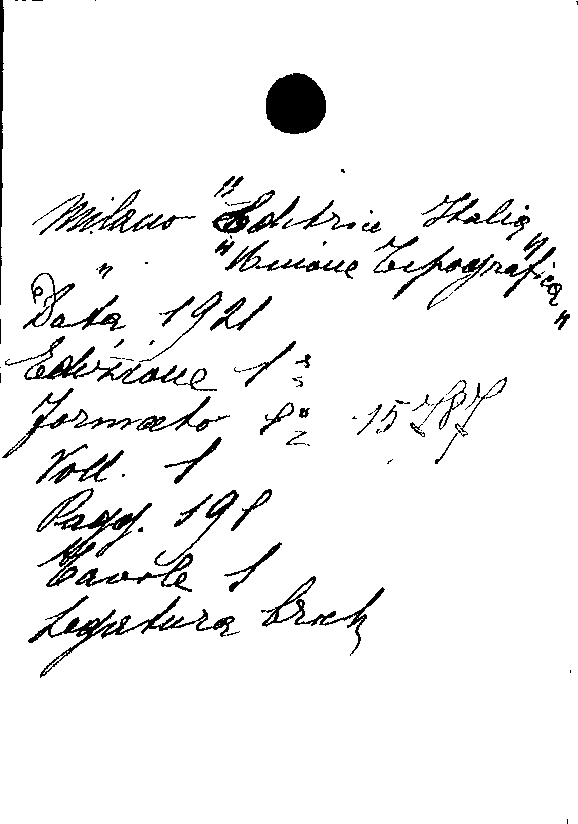 Milano "Editrice Italia"
" "Unione Tipografica"
Data 1921
Edizione 1ª
Formato 8° 15787
Voll. 1
Pagg. 198
Tavole 1
Legatura broch